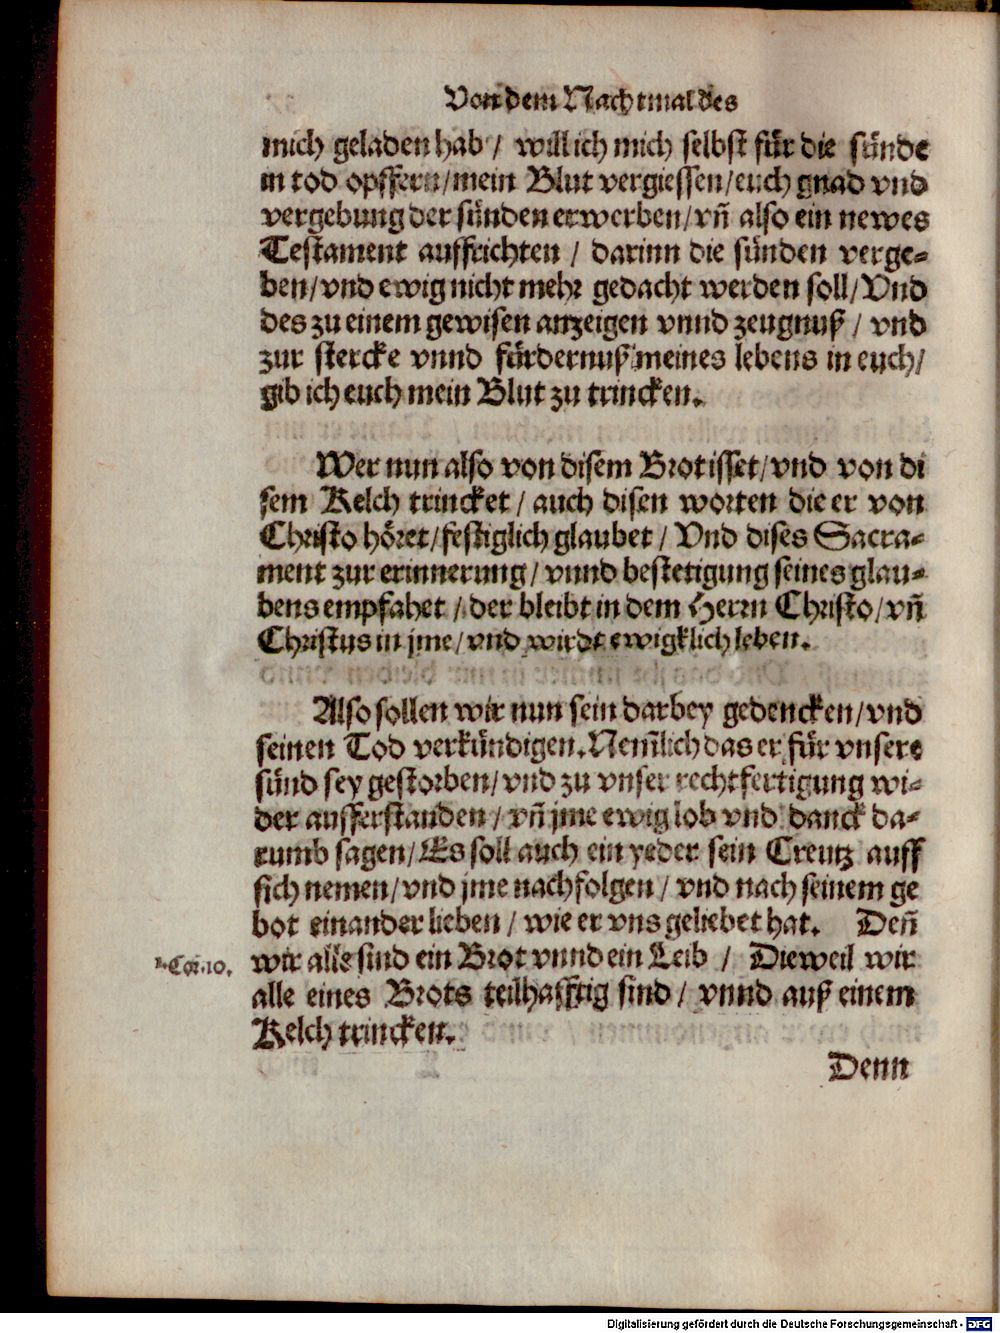 Von dem Nachtmal des
mich geladen hab / will ich mich selbst für die sünde
in tod opffern / mein Blut vergiessen / euch gnad vnd
vergebung der sünden erwerben / vñ also ein newes
Testament auffrichten / darinn die sünden verge-
ben / vnd ewig nicht mehr gedacht werden soll / Vnd
des zu einem gewisen anzeigen vnnd zeugnuß / vnd
zur stercke vnnd fürdernuß meines lebens in euch /
gib ich euch mein Blut zu trincken.
Wer nun also von disem Brot isset / vnd von di
sem Kelch trincket / auch disen worten die er von
Christo höret / festiglich glaubet / Vnd dises Sacra-
ment zur erinnerung / vnnd bestetigung seines glau-
bens empfahet / der bleibt in dem Herrn Christo / vñ
Christus in jme / vnd wirdt ewigklich leben.
Also sollen wir nun sein darbey gedencken / vnd
seinen Tod verkündigen. Nem̃lich das er für vnsere
sünd sey gestorben / vnd zu vnser rechtfertigung wi-
der aufferstanden / vñ jme ewig lob vnd danck da-
rumb sagen / Es soll auch ein yeder sein Creutz auff
sich nemen / vnd jme nachfolgen / vnd nach seinem ge
bot einander lieben / wie er vns geliebet hat. Deñ
1. Cor. 10. wir alle sind ein Brot vnnd ein Leib / Dieweil wir
alle eines Brots teilhafftig sind / vnnd auß einem
Kelch trincken.
Denn
Digitalisierung gefördert durch die Deutsche Forschungsgemeinschaft - DFG